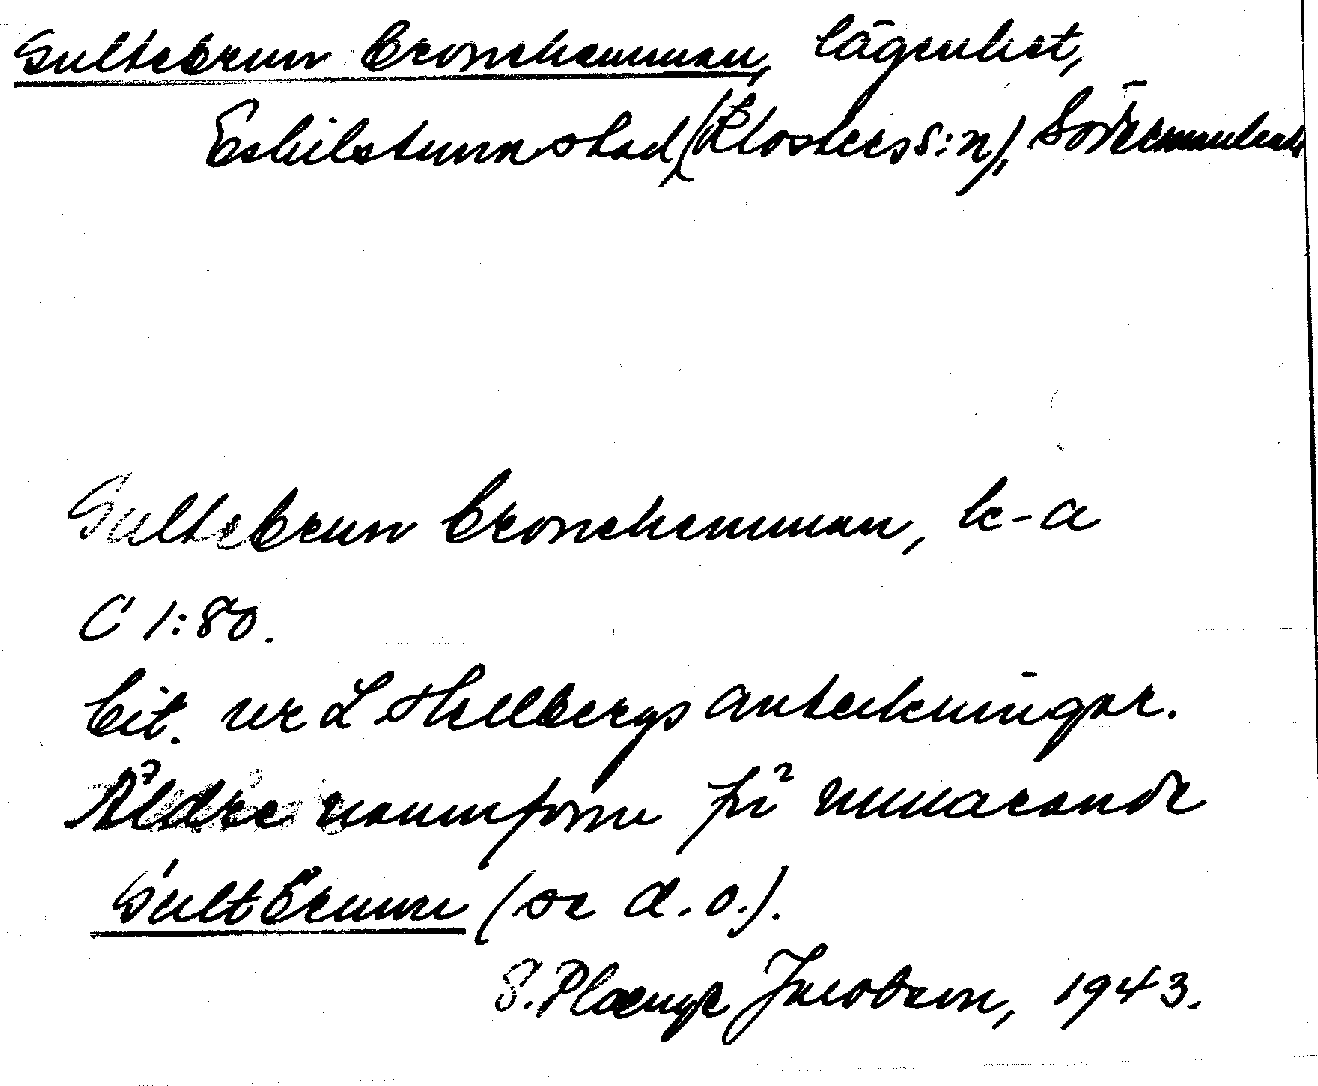 Sultebrun Cronehemman, lägenhet,
Eskilstuna stad (Klosters s:n), Södermanland
Sultebrun Cronehemman, k-a
C 1:80.
Cit. ur L Hellbergs anteckningar.
Äldre namnform på nuvarande
Sultbrunn (se d.o.).
S. Plænge Jacobson, 1943.